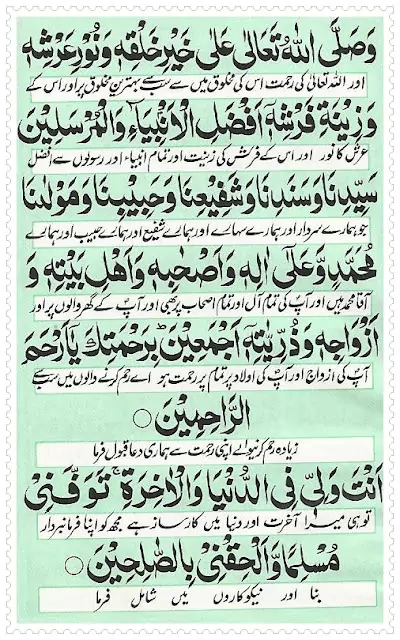 وَصَلَّى اللهُ تَعَالٰى عَلٰى خَيْرِ خَلْقِهٖ وَنُوْرِ عَرْشِهٖ
اور اللہ تعالیٰ کی رحمت اس کی مخلوق میں سے سب سے بہترین مخلوق پر اور اس کے
وَزِيْنَةِ فَرْشِهٖ اَفْضَلِ الْاَنْبِيَآءِ وَالْمُرْسَلِيْنَ
عرش کا نور اور اس کے فرش کی زینت اور تمام انبیاء اور رسولوں سے افضل
سَيِّدِنَا وَسَنَدِنَا وَشَفِيْعِنَا وَحَبِيْبِنَا وَمَوْلٰنَا
جو ہمارے سردار اور ہمارے سہارے اور ہمارے شفیع اور ہمارے حبیب اور ہمارے
مُحَمَّدٍ وَّعَلٰٓى اٰلِهٖ وَاَصْحٰبِهٖ وَاَهْلِ بَيْتِهٖ وَ
آقا محمد ہیں اور آپ کی تمام آل اور تمام اصحاب پر بھی اور آپ کے گھر والوں پر اور
اَزْوَاجِهٖ وَذُرِّيّٰتِهٖ اَجْمَعِيْنَ بِرَحْمَتِكَ يَآ اَرْحَمَ
آپ کی ازواج اور آپ کی اولاد پر تمام پر رحمت ہو اے رحم کرنے والوں میں سب سے
الرّٰحِمِيْنَ ○
زیادہ رحم کرنیوالے اپنی رحمت سے ہماری دعا قبول فرما
اَنْتَ وَلِيّٖ فِى الدُّنْيَا وَالْاٰخِرَةِ ۚ تَوَفَّنِىْ
تو ہی میرا آخرت اور دنیا میں کارساز ہے مجھ کو اپنا فرمانبردار
مُسْلِمًا وَّاَلْحِقْنِىْ بِالصّٰلِحِيْنَ ○
بنا اور نیکوکاروں میں شامل فرما